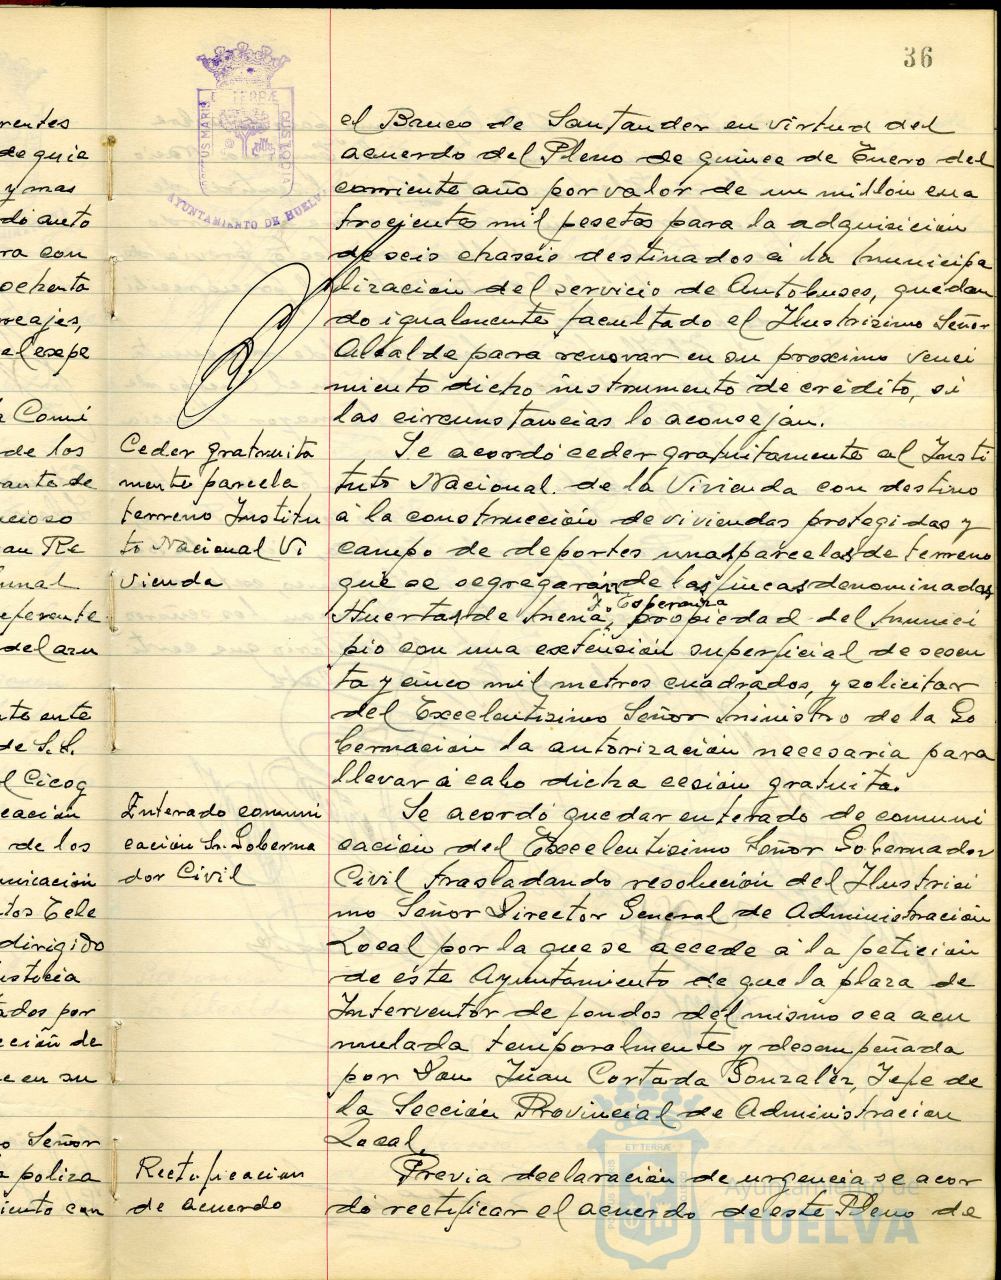 36
rentes
de quie
y mas
do auto
ra con
ochenta
reajes,
el expe
a Comi
de los
rante de
ncioso
an Re
unal
referente
del azu
nte ente
de S.S.
l Cicog
cación
de los
unicación
tos Tele
dirigido
usticia
ados por
cción de
e en su
o Señor
a poliza
iento con
ET TERRÆ
PORTUS MARIS
CUSTODIA
AYUNTAMIENTO DE HUELVA
Ceder gratuita
mente parcela
terreno Institu
to Nacional Vi
vienda
Enterado comuni
cación Sr. Goberna
dor Civil
Rectificacion
de acuerdo
el Banco de Santander en virtud del
acuerdo del Pleno de quince de Enero del
corriente año por valor de un millón cua
trocientos mil pesetas para la adquisición
de seis chassis destinados á la municipa
lización del servicio de Autobuses, quedan
do igualmente facultado el Ilustrisimo Señor
Alcalde para renovar en su proximo venci
miento dicho instrumento de crédito, si
las circunstancias lo aconsejan.
Se acordó ceder gratuitamente al Insti
tuto Nacional de la Vivienda con destino
á la construcción de viviendas protegidas y
campo de deportes unas parcelas de terreno
que se segregarán de las fincas denominadas
y Esperanza
Huertas de Mena, propiedad del Munici
pio con una extensión superficial de sesen
ta y cinco mil metros cuadrados, y solicitar
del Excelentisimo Señor Ministro de la Go
bernación la autorización necesaria para
llevar á cabo dicha cesión gratuita.
Se acordó quedar enterado de comuni
cación del Excelentisimo Señor Gobernador
Civil trasladando resolución del Ilustrisi
mo Señor Director General de Administración
Local por la que se accede á la petición
de éste Ayuntamiento de que la plaza de
Interventor de fondos del mismo sea acu
mulada temporalmente y desempeñada
por Don Juan Cortada Gonzalez, Jefe de
la Sección Provincial de Administración
Local.
Previa declaración de urgencia se acor
dó rectificar el acuerdo de este Pleno de
ET TERRÆ
Ayuntamiento de
HUELVA